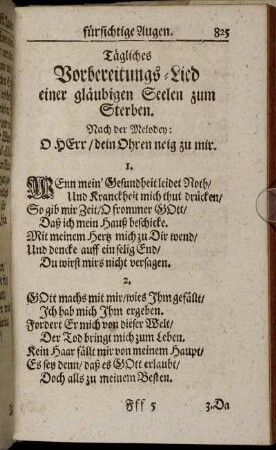 fürsichtige Augen. 825
Tägliches
Vorbereitungs-Lied
einer gläubigen Seelen zum
Sterben.
Nach der Melodey:
O HErr/dein Ohren neig zu mir.
1.
WEnn mein' Gesundheit leidet Noth/
Und Kranckheit mich thut drücken/
So gib mir Zeit/O frommer GOtt/
Daß ich mein Hauß beschicke.
Mit meinem Hertz mich zu Dir wend/
Und dencke auff ein selig End/
Du wirst mirs nicht versagen.
2.
GOtt machs mit mir/wies Jhm gefällt/
Jch hab mich Jhm ergeben.
Fordert Er mich von dieser Welt/
Der Tod bringt mich zum Leben.
Kein Haar fällt mir von meinem Haupt/
Es sey denn/daß es GOtt erlaubt/
Doch alls zu meinem Besten.
Fff 5 3. Da